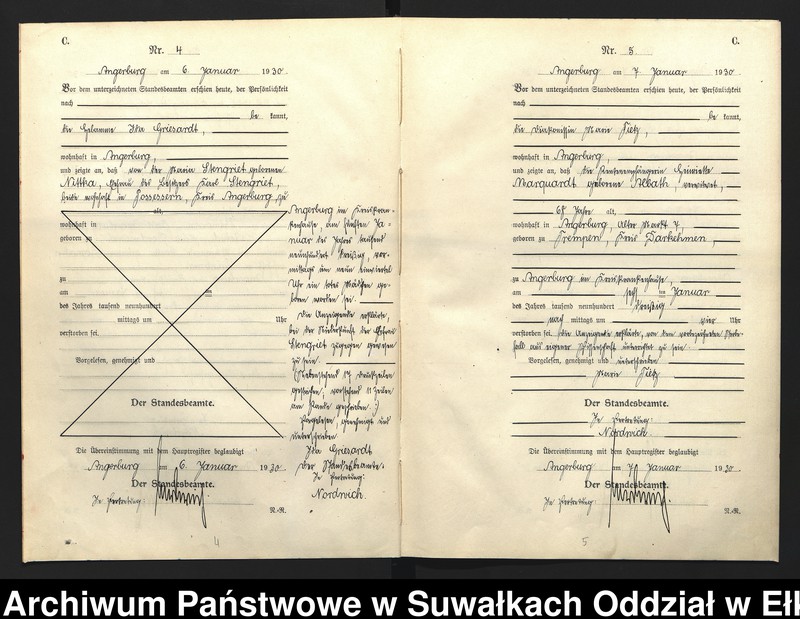 C.
Nr. 4
Angerburg am 6. Januar 1930.
Vor dem unterzeichneten Standesbeamten erschien heute, der Persönlichkeit
nach
be kannt,
die Hebamme Ida Griesardt,
wohnhaft in Angerburg,
und zeigte an, daß von der Maria Stengriet geborenen
Nittka, Ehefrau des Besitzers Karl Stengriet,
beide wohnhaft in Jossessern, Kreis Angerburg, zu
alt,
wohnhaft in
geboren zu
zu
am
des Jahres tausend neunhundert
mittags um Uhr
verstorben sei.
Vorgelesen, genehmigt und
Der Standesbeamte.
Angerburg im Kreiskran-
kenhause, am fünften Ja-
nuar des Jahres tausend
neunhundert dreißig, vor-
mittags um neun einviertel
Uhr ein totes Mädchen ge-
boren worden sei.
Die Anzeigende erklärte,
bei der Niederkunft der Ehefrau
Stengriet zugegen gewesen
zu sein.
(Nebenstehend 17 Druckzeilen
gestrichen, vorstehend 11 Zeilen
am Rande geschrieben.)
Vorgelesen, genehmigt und
unterschrieben
Ida Griesardt
Der Standesbeamte.
In Vertretung:
Nordwich.
Die Übereinstimmung mit dem Hauptregister beglaubigt
Angerburg am 6. Januar 1930.
Der Standesbeamte.
In Vertretung:
N.-R.
4
C.
Nr. 5
Angerburg am 7. Januar 1930.
Vor dem unterzeichneten Standesbeamten erschien heute, der Persönlichkeit
nach
be kannt,
die Diakonissin Marie Tietz,
wohnhaft in Angerburg,
und zeigte an, daß die Rentenempfängerin Henriette
Marquardt geborene Albath, verwitwet,
68 Jahre alt,
wohnhaft in Angerburg, Alter Markt 7,
geboren zu Trempen, Kreis Darkehmen,
zu Angerburg im Kreiskrankenhause,
am sechsten Januar
des Jahres tausend neunhundert dreißig
nach mittags um vier Uhr
verstorben sei. Die Anzeigende erklärte, von dem vorbezeichneten Sterbe-
fall aus eigener Wissenschaft unterrichtet zu sein.
Vorgelesen, genehmigt und unterschrieben
Marie Tietz
Der Standesbeamte.
In Vertretung:
Nordwich.
Die Übereinstimmung mit dem Hauptregister beglaubigt
Angerburg am 7. Januar 1930.
Der Standesbeamte.
In Vertretung:
N.-R.
5
Archiwum Państwowe w Suwałkach Oddział w Ełk